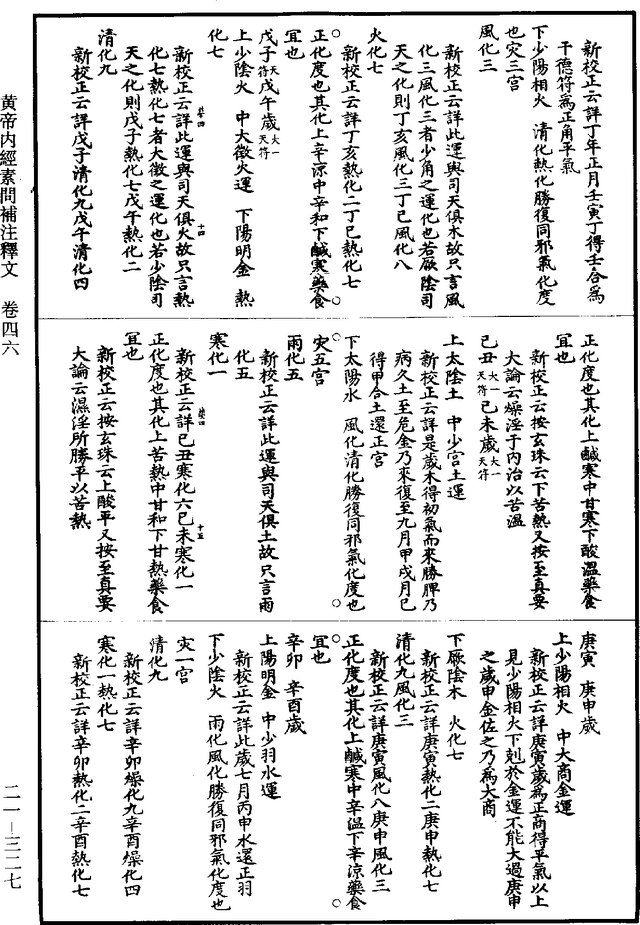 黃帝內經素問補注釋文 卷四六
新校正云詳丁年正月壬寅丁得壬合爲
干德符爲正角平氣
下少陽相火 清化熱化勝復同邪氣化度
也灾三宮
風化三
新校正云詳此運與司天俱木故只言風
化三風化三者少角之運化也若厥陰司
天之化則丁亥風化三丁巳風化八
火化七
新校正云詳丁亥熱化二丁巳熱化七
正化度也其化上辛涼中辛和下鹹寒藥食
宜也
戊子天符戊午歲太一天符
上少陰火 中大徵火運 下陽明金 熱
化七
新校正云詳此運與司天俱火故只言熱
化七熱化七者大徵之運化也若少陰司
天之化則戊子熱化七戊午熱化二
清化九
新校正云詳戊子清化九戊午清化四
正化度也其化上鹹寒中甘寒下酸溫藥食
宜也
新校正云按玄珠云下苦熱又按至真要
大論云燥淫于內治以苦溫
己丑太一天符己未歲太一天符
上太陰土 中少宮土運
新校正云詳是歲木得初氣而來勝脾乃
病久土至危金乃來復至九月甲戌月己
得甲合土還正宮
下太陽水 風化清化勝復同邪氣化度也
灾五宮
雨化五
新校正云詳此運與司天俱土故只言雨
化五
寒化一
新校正云詳己丑寒化六己未寒化一
正化度也其化上苦熱中甘和下甘熱藥食
宜也
新校正云按玄珠云上酸平又按至真要
大論云濕淫所勝平以苦熱
庚寅 庚申歲
上少陽相火 中大商金運
新校正云詳庚寅歲爲正商得平氣以上
見少陽相火下剋於金運不能大過庚申
之歲申金佐之乃爲大商
下厥陰木 火化七
新校正云詳庚寅熱化二庚申熱化七
清化九風化三
新校正云詳庚寅風化八庚申風化三
正化度也其化上鹹寒中辛溫下辛涼藥食
宜也
辛卯 辛酉歲
上陽明金 中少羽水運
新校正云詳此歲七月丙申水還正羽
下少陰火 雨化風化勝復同邪氣化度也
灾一宮
清化九
新校正云詳辛卯燥化九辛酉燥化四
寒化一熱化七
新校正云詳辛卯熱化二辛酉熱化七
二一—三二七